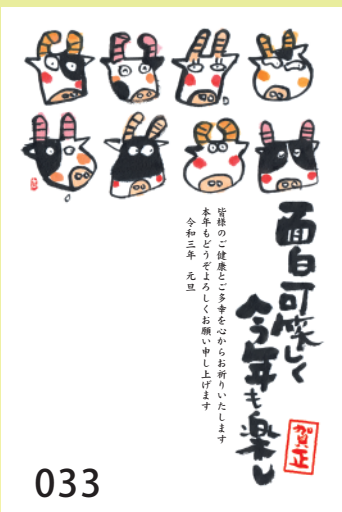 面白可笑しく
今年も楽し
賀正
皆様のご健康とご多幸を心からお祈りいたします
本年もどうぞよろしくお願い申し上げます
令和三年　元旦
033